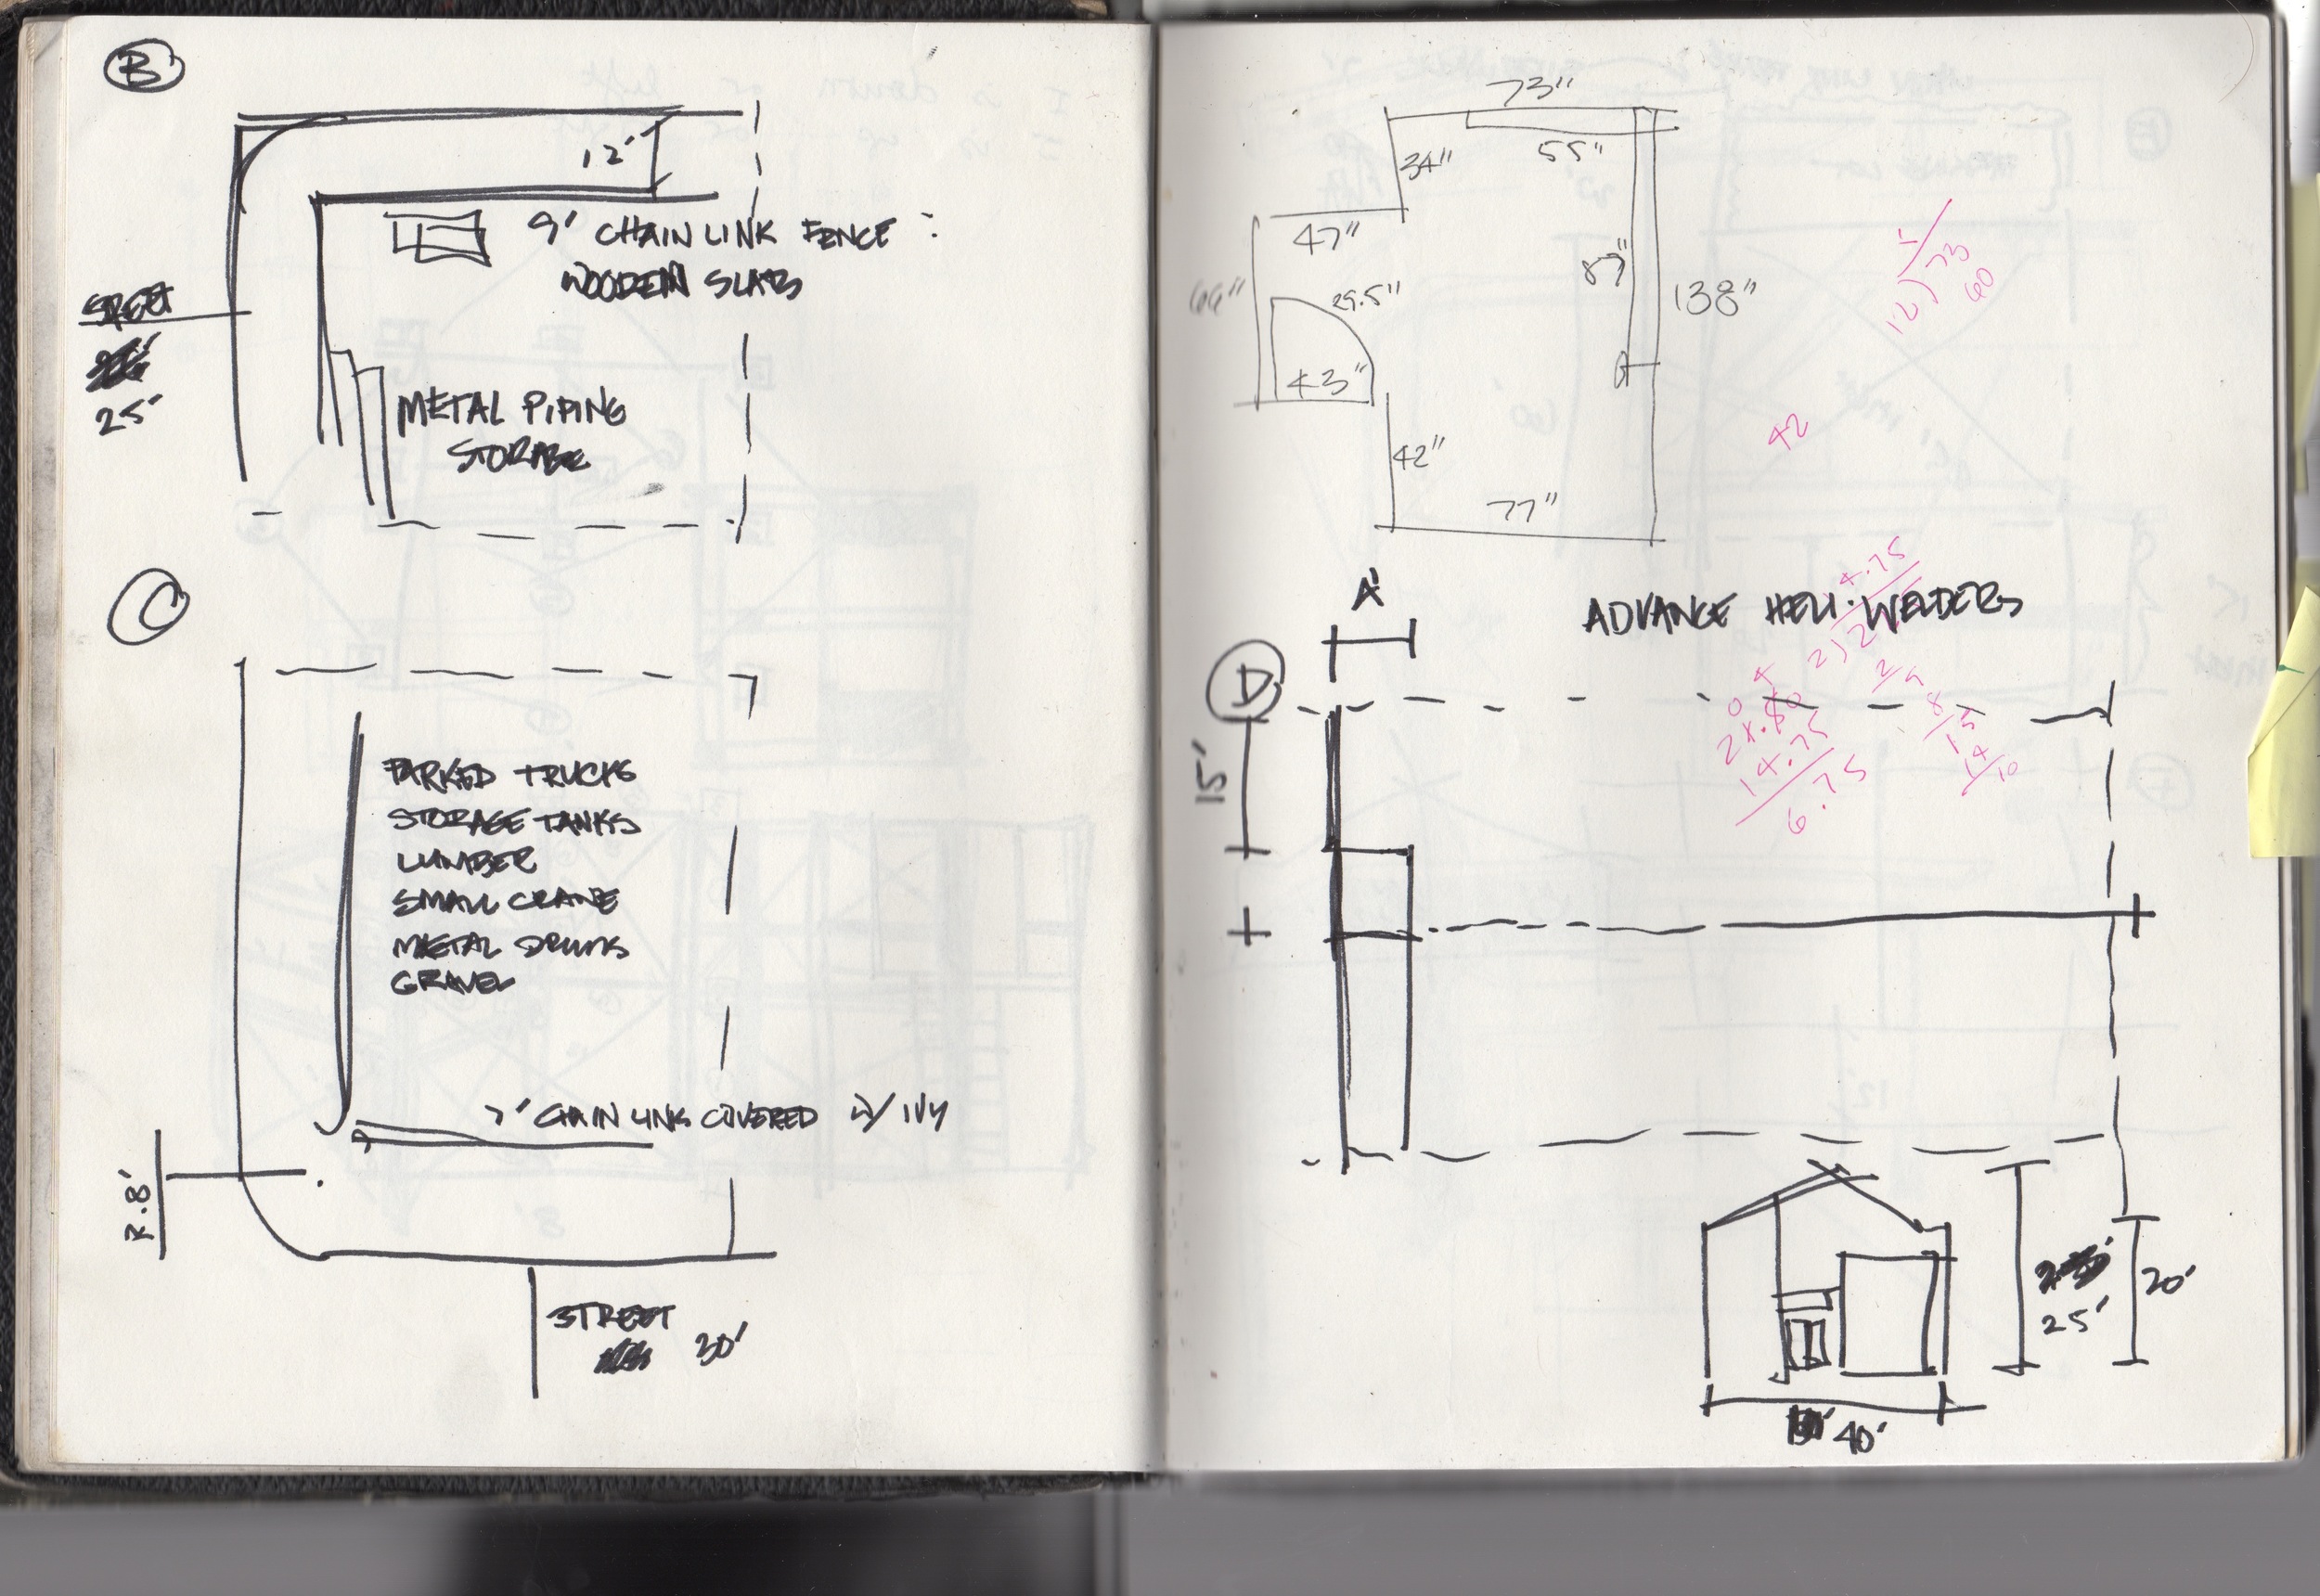 B
12'
9' CHAIN LINK FENCE :
WOODEN SLATS
STREET
25'
METAL PIPING
STORAGE
C
PARKED TRUCKS
STORAGE TANKS
LUMBER
SMALL CRANE
METAL DRUMS
GRAVEL
7' CHAIN LINK COVERED W/ IVY
R.8'
STREET
30'
73"
55"
34"
47"
66"
29.5"
43"
87"
138"
42"
77"
12)73
60
42
ADVANCE HELI. WELDERS
D
15'
4.75
14.75
6.75
25'
20'
40'